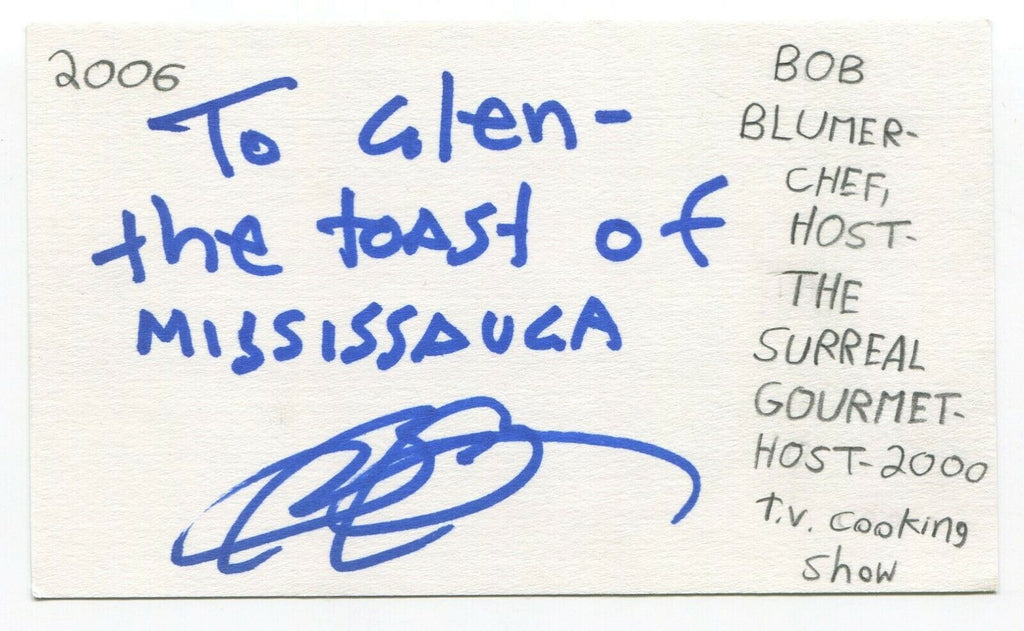 2006
To Glen-
the toast of
MISSISSAUGA
BOB
BLUMER-
CHEF,
HOST-
THE
SURREAL
GOURMET-
HOST-2000
T.V. cooking
show